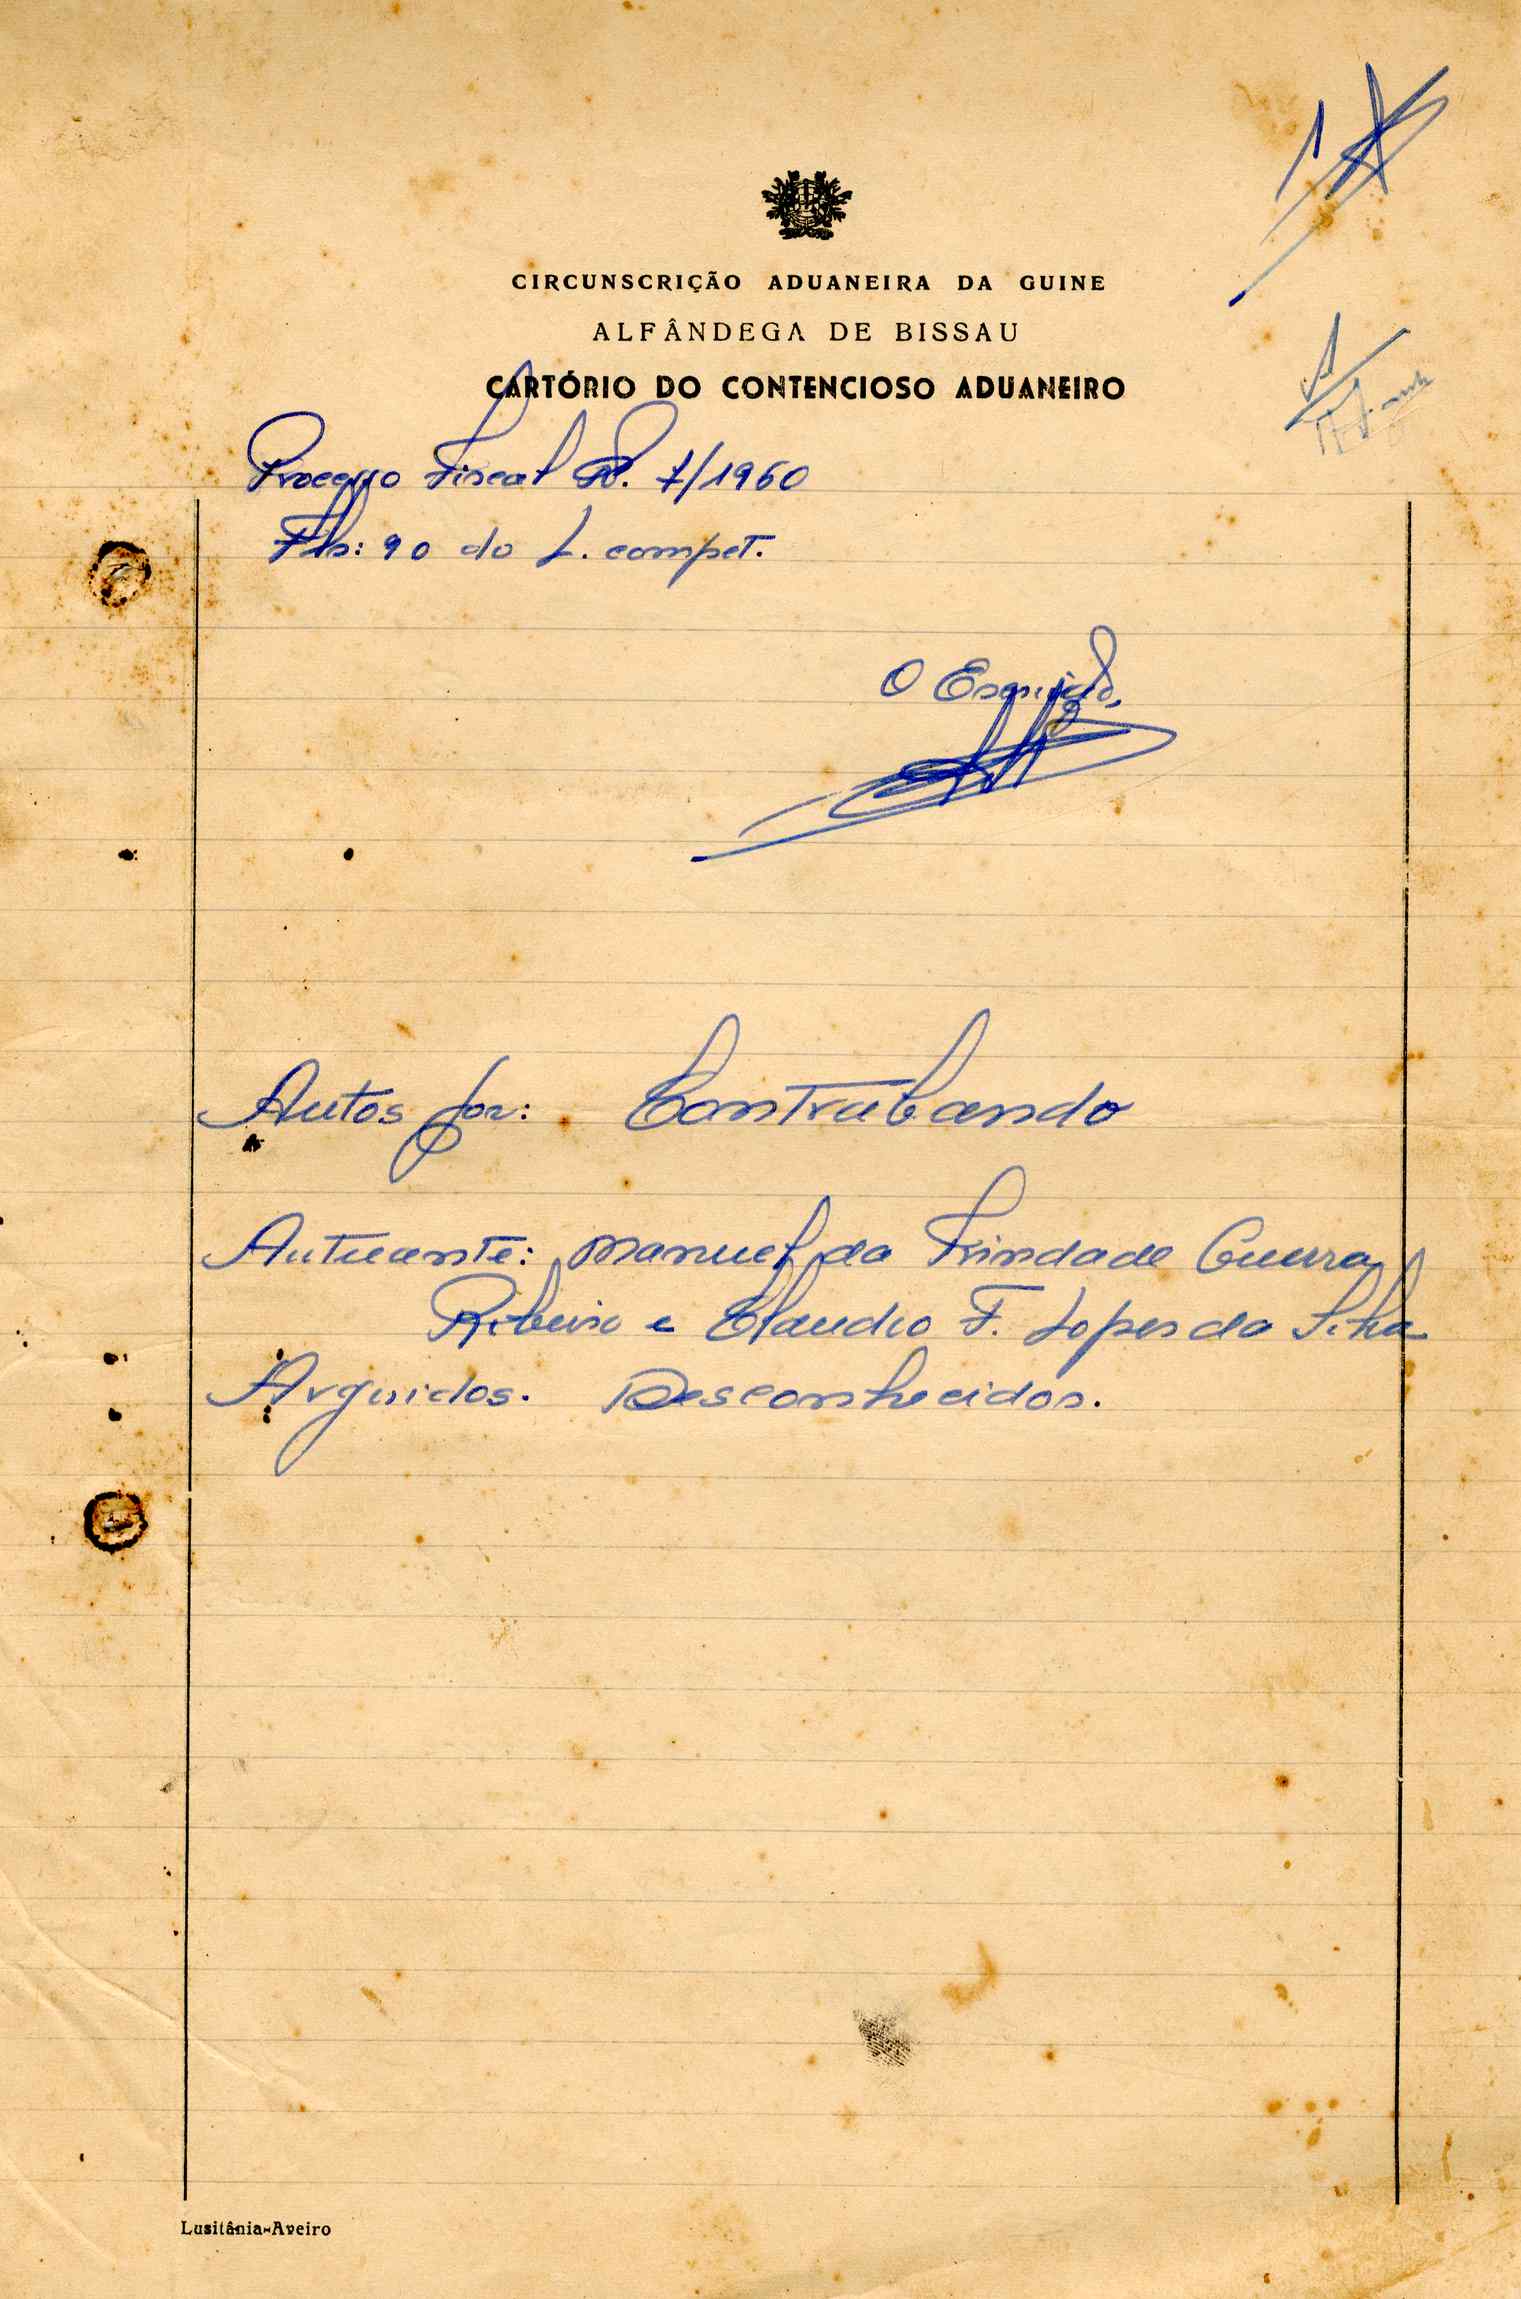 CIRCUNSCRIÇÃO ADUANEIRA DA GUINE
ALFÂNDEGA DE BISSAU
CARTÓRIO DO CONTENCIOSO ADUANEIRO
Processo Fiscal Nº. 7/1960
Fls: 90 do L. compet.
O Escrivão,
Autos por: Contrabando
Autuante: Manuel da Trindade Guerra
Ribeiro e Claudio F. Lopes da Silva
Arguidos. Desconhecidos.
Lusitânia-Aveiro